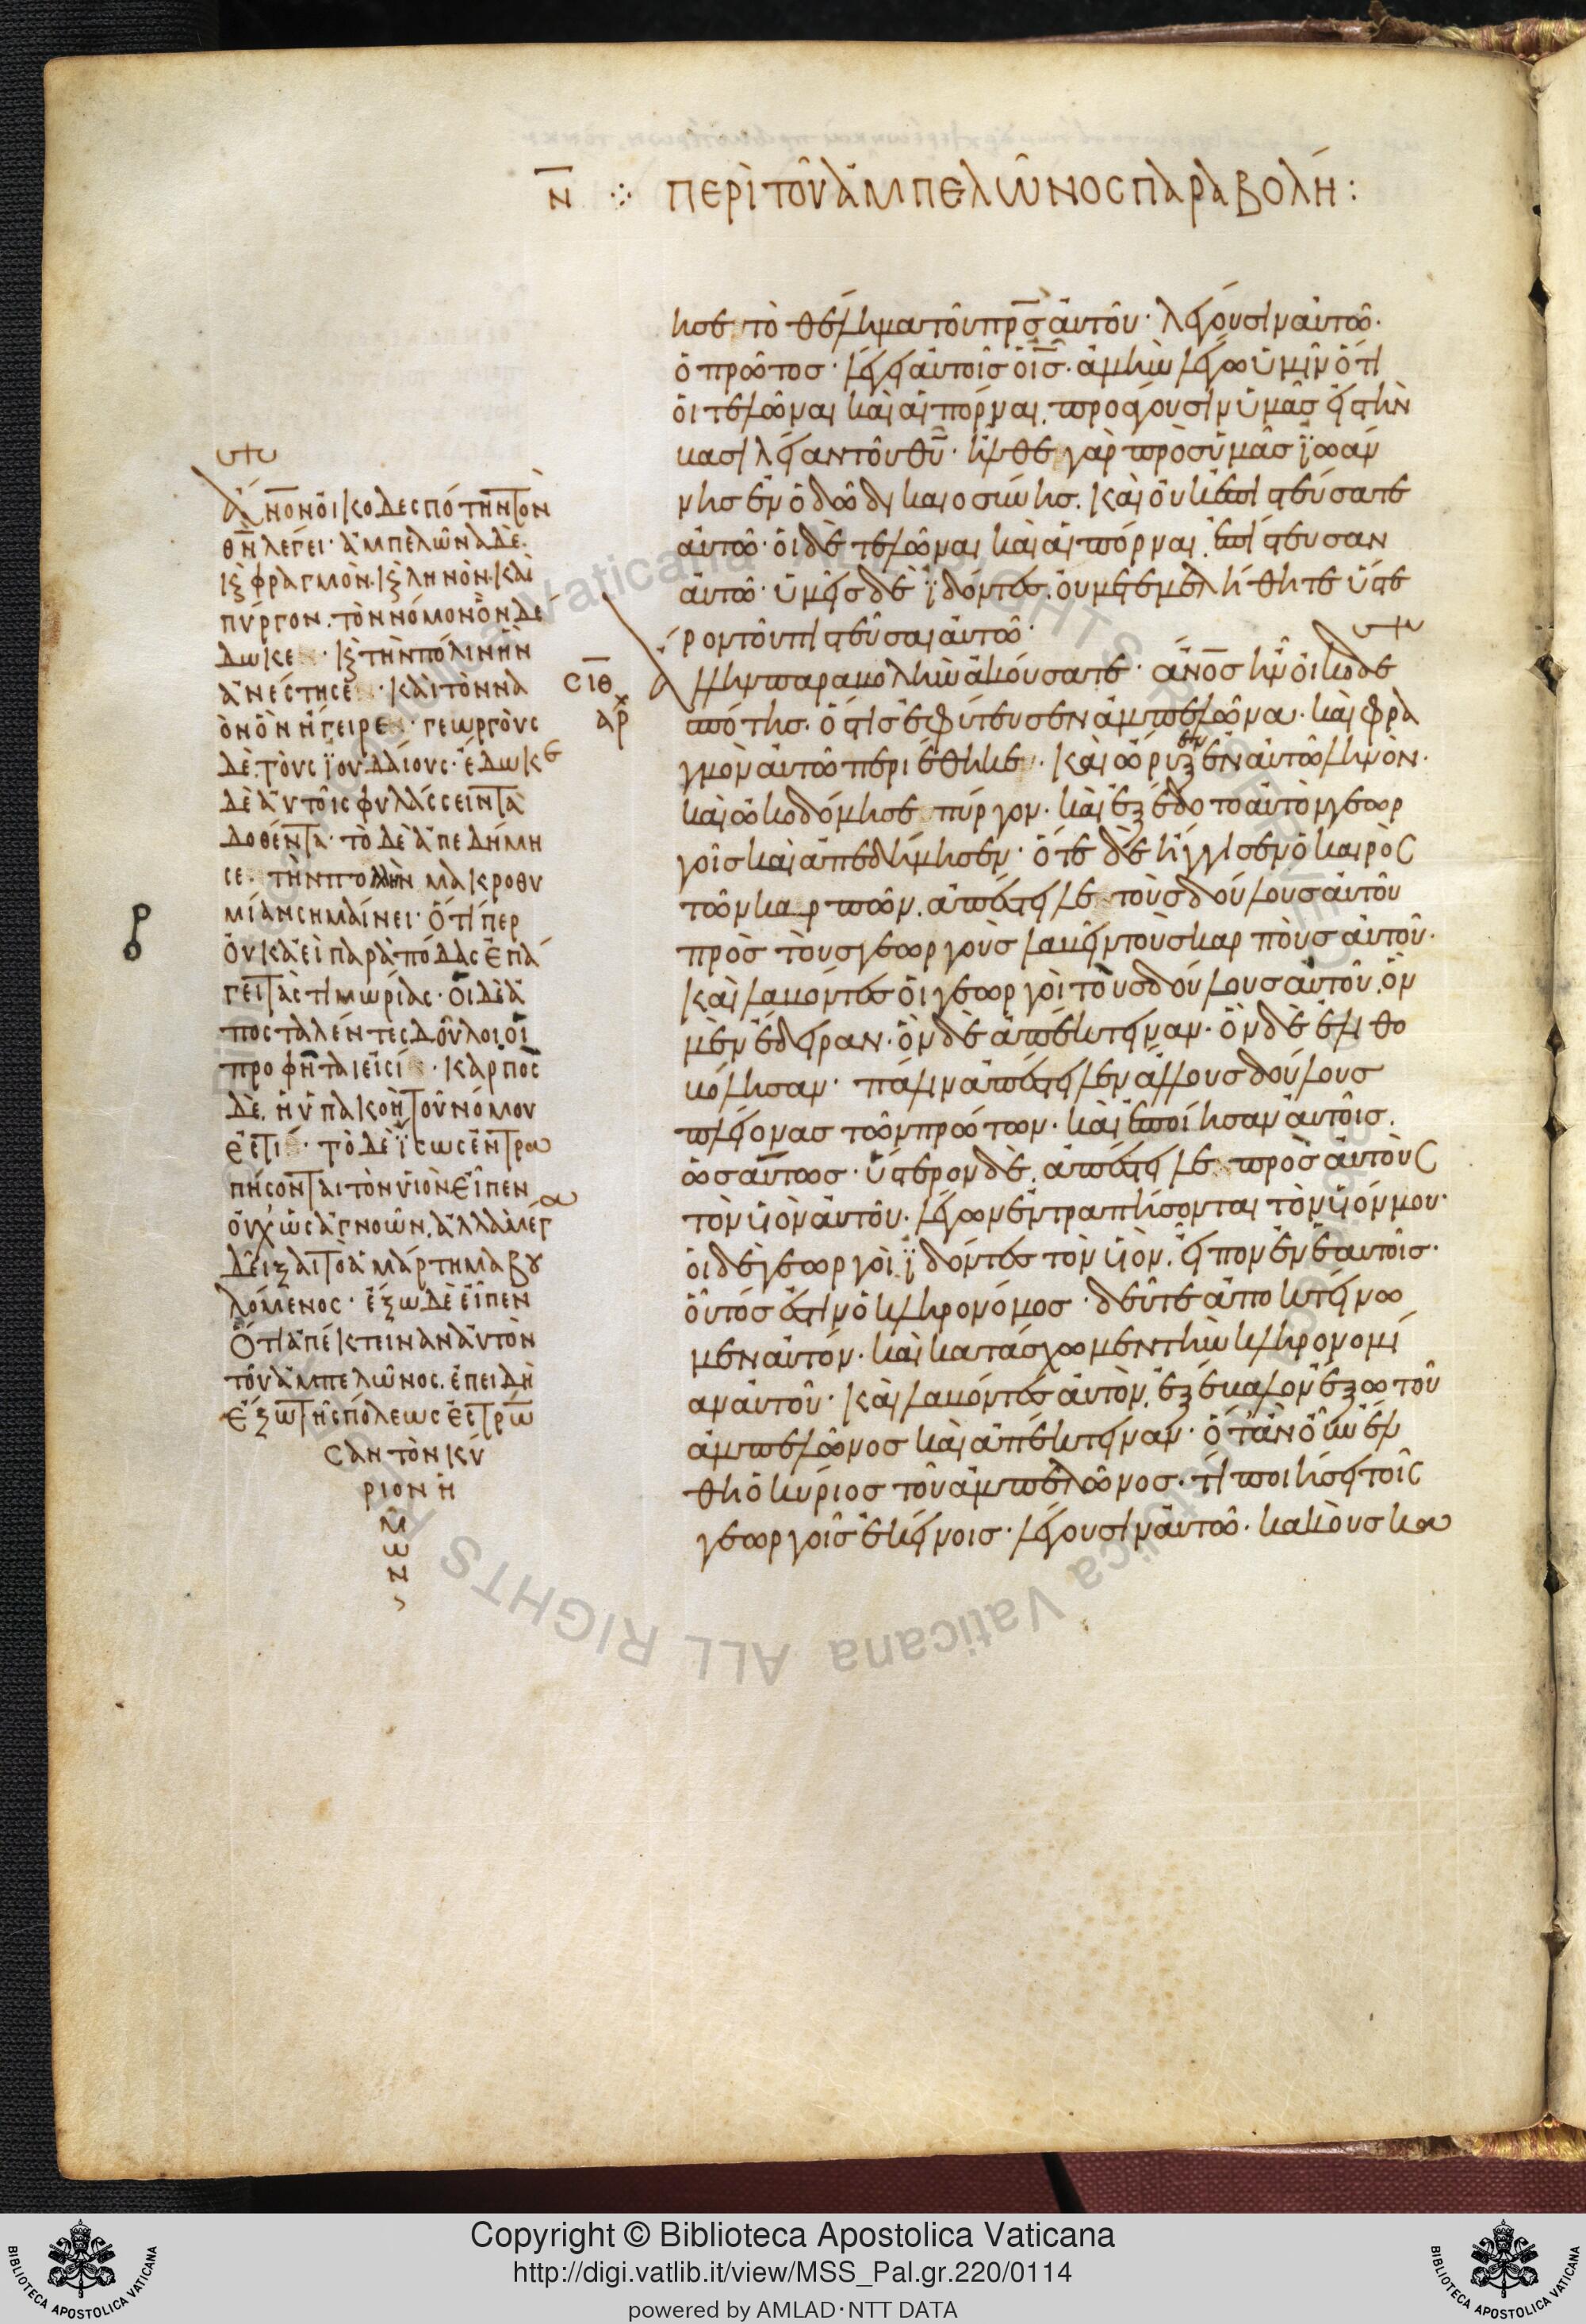 Ν̅ ⁘ περὶ τοῦ ἀμπελῶνος παραβολή:
ησε τὸ θέλημα τοῦ πρ̅σ̅ αὐτοῦ· λέγουσιν αὐτῶ·
ὁ πρῶτοσ· λέγει αὐτοῖσ ὁ ι̅σ̅· ἀμὴν λέγω ὑμῖν ὅτι
οἱ τελῶναι καὶ αἱ πόρναι, προάγουσιν ὑμᾶσ εἰς τὴν
βασιλείαν τοῦ θ̅υ̅· ἦλθε γὰρ πρὸσ ὑμᾶσ ϊωάν
νησ ἐν ὁδῶ δικαιοσύνησ. καὶ οὐκ ἐπιστεύσατε
αὐτῶ· οἱ δὲ τελῶναι καὶ αἱ πόρναι, ἐπίστευσαν
αὐτῶ· ὑμεῖσ δὲ ϊδόντεσ, οὐ μετεμελήθητε ὕστε
ρον τοῦ πιστεῦσαι αὐτῶ·
Ἄλλην παραβολὴν ἀκούσατε· α̅ν̅ο̅σ̅ ἦν οἰκοδε
σπότησ. ὅστισ ἐφύτευσεν ἀμπελῶνα· καὶ φρα
γμὸν αὐτῶ περιέθηκε· καὶ ὤρυξεν ἐν αὐτῶ ληνὸν·
καὶ ὠκοδόμησε πύργον· καὶ ἐξέδοτο αὐτὸν γεωρ
γοῖσ καὶ ἀπεδήμησεν· ὅτε δὲ ἤγγισεν ὁ καιρὸσ
τῶν καρπῶν, ἀπέστειλε τοὺσ δούλουσ αὐτοῦ
πρὸσ τοὺσ γεωργοὺσ λαβεῖν τοὺσ καρποὺσ αὐτοῦ·
καὶ λαβόντεσ οἱ γεωργοὶ τοὺσ δούλουσ αὐτοῦ, ὃν
μὲν ἔδειραν· ὃν δὲ ἀπέκτειναν· ὃν δὲ ἐλιθο
βόλησαν· πάλιν ἀπέστειλεν ἄλλουσ δούλουσ
πλείονασ τῶν πρώτων· καὶ ἐποίησαν αὐτοῖσ,
ὡσαύτωσ· ὕστερον δὲ, ἀπέστειλε πρὸσ αὐτοὺσ
τὸν υἱὸν αὐτοῦ· λέγων ἐντραπήσονται τὸν υἱόν μου·
οἱ δὲ γεωργοὶ ϊδόντεσ τὸν υἱὸν, εἶπον ἐν ἑαυτοῖσ·
οὗτόσ ἐστιν ὁ κληρονόμοσ· δεῦτε ἀποκτείνω
μεν αὐτόν· καὶ κατάσχωμεν τὴν κληρονομί
αν αὐτοῦ· καὶ λαβόντεσ αὐτὸν, ἐξέβαλον ἔξω τοῦ
ἀμπελῶνοσ καὶ ἀπέκτειναν· ὅταν οὖν ἔλ
θη ὁ κύριοσ τοῦ ἀμπελῶνοσ· τί ποιήσει τοῖσ
γεωργοῖσ ἐκείνοισ· λέγουσιν αὐτῶ· κακοὺσ κα
α̅ν̅ο̅ν̅ οἰκοδεσπότην τὸν
θ̅ν̅ λέγει· ἀμπελῶνα δὲ.
ι̅ς̅ φραγμὸν· ι̅ς̅ ληνὸν· καὶ
πύργον. τὸν νόμον ὃν δέ
δωκε· ι̅ς̅ τὴν πόλιν ἣν
ἀνέστησε· καὶ τὸν να
ὸν ὃν ἤγειρε· γεωργοὺς
δὲ. τοὺς ϊουδαίους· ἔδωκε
δὲ αὐτοῖς φυλάσσειν τὰ
δοθέντα· τὸ δὲ ἀπεδήμη
σε. τὴν πολλὴν μακροθυ
μίαν σημαίνει· ὅτι περ
οὐκ ἀεὶ παρὰ πόδας ἐπά
γει τὰς τιμωρίας· οἱ δὲ ἀ
ποσταλέντες δοῦλοι, οἱ
προφῆται εἰσί· καρπὸς
δὲ, ἡ ὑπακοὴ τοῦ νόμου
ἐστι· τὸ δὲ ϊσως ἐντρα
πήσονται τὸν υἱὸν εἶπεν
οὐχ ὡς ἀγνοῶν, ἀλλὰ μέγα
δεῖξαι τὸ ἁμάρτημα βου
λόμενος· ἔξω δὲ εἶπεν
ὅτι ἀπέκτειναν αὐτὸν
τοῦ ἀμπελῶνος. ἐπειδὴ
ἔξω τῆς πόλεως ἐστρω
σαν τὸν κύ
ριον ἡ
μ
ω
ν
ϲ̅ι̅θ̅
ἀρχ